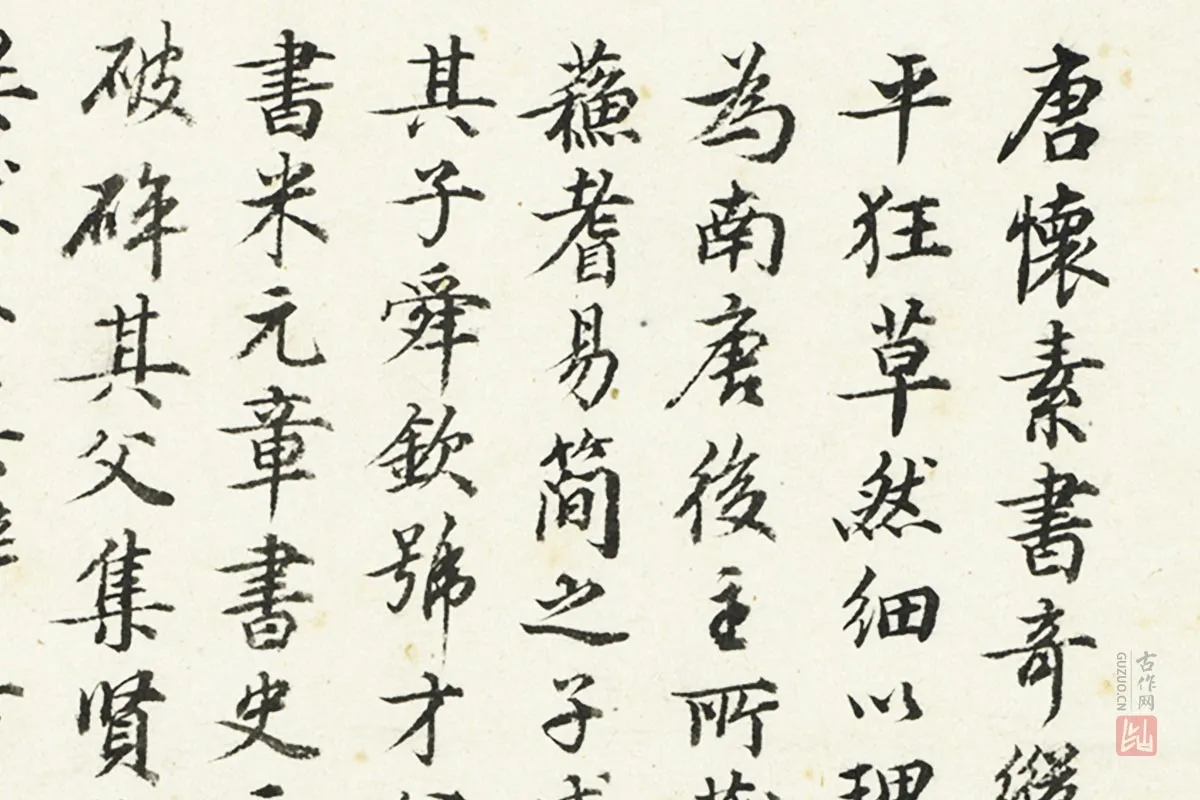 唐懷素書奇縱
平狂草然細以理
為南唐後主所藏
蘇耆易簡之子
其子舜欽號才
書米元章書史
破碎其父集賢
古作网
GUZUO.CN